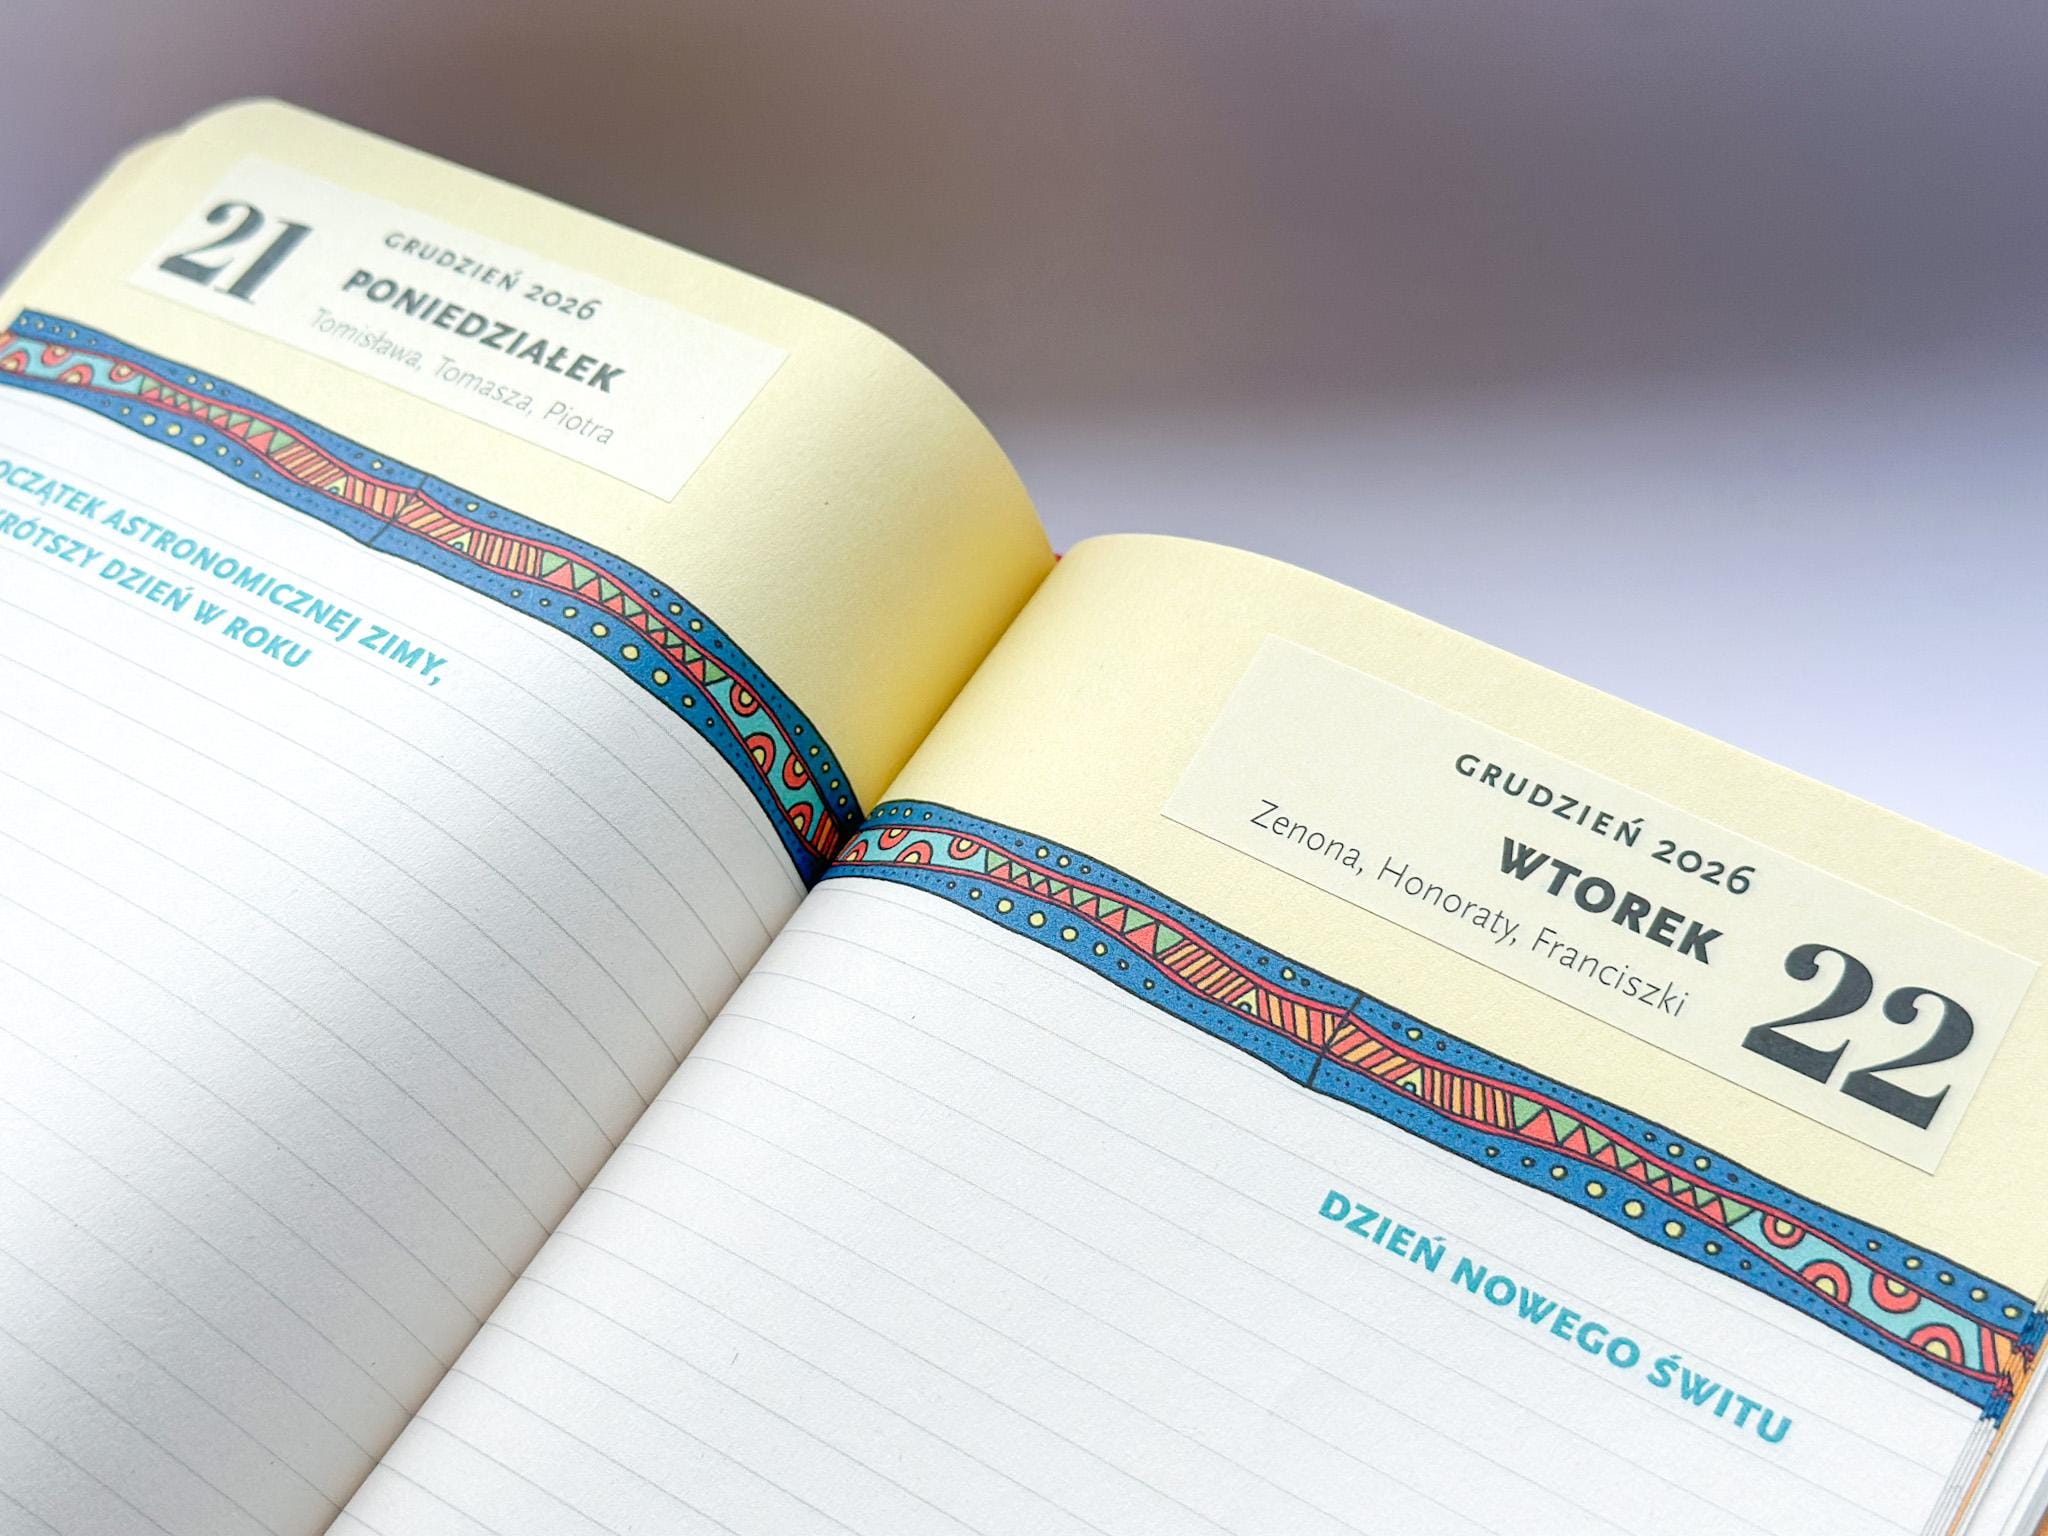 21
GRUDZIEŃ 2026
PONIEDZIAŁEK
Tomisława, Tomasza, Piotra
OCZĄTEK ASTRONOMICZNEJ ZIMY,
KRÓTSZY DZIEŃ W ROKU
GRUDZIEŃ 2026
WTOREK
Zenona, Honoraty, Franciszki
22
DZIEŃ NOWEGO ŚWITU